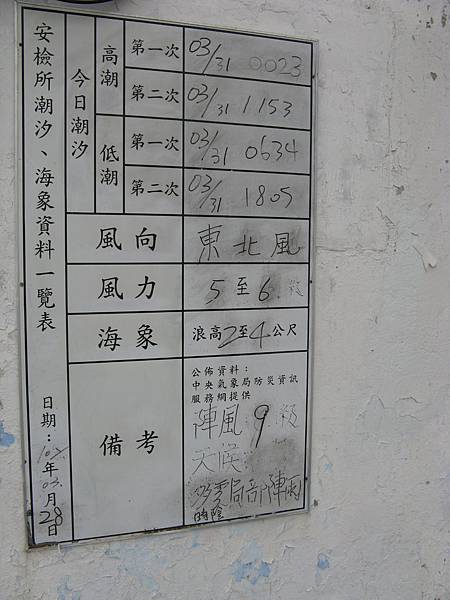 安檢所潮汐、海象資料一覽表
日期：103年03月28日
今日潮汐
高潮
第一次 03/31 0023
第二次 03/31 1153
低潮
第一次 03/31 0634
第二次 03/31 1805
風向 東北風
風力 5至6級
海象 浪高2至4公尺
備考
公佈資料：
中央氣象局防災資訊
服務網提供
陣風9級
天候：
多雲局部陣雨
時陰